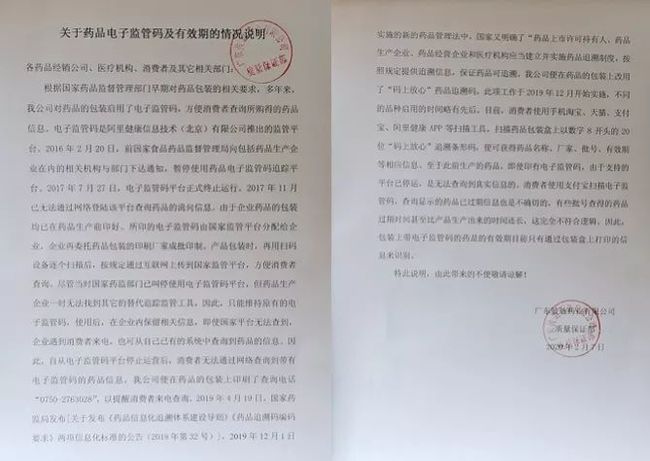 关于药品电子监管码及有效期的情况说明
各药品经销公司、医疗机构、消费者及其它相关部门：
根据国家药品监督管理部门早期对药品包装的相关要求，多年来，
我公司对药品的包装启用了电子监管码，方便消费者查询所购得的药品
信息。电子监管码是阿里健康信息技术（北京）有限公司推出的监管平
台。2016 年 2 月 20 日，前国家食品药品监督管理局向包括药品生产企
业在内的相关机构与部门下达通知，暂停使用药品电子监管码追踪平
台。2017 年 7 月 27 日，电子监管码平台正式终止运行。2017 年 11 月
已无法通过网络登陆该平台查询药品的流向信息。由于企业药品的包装
均已在药品生产前印好。所印的电子监管码由国家监管平台分配给企
业，企业再委托药品包装的印刷厂家成批印制。产品包装时，再用扫码
设备逐个扫描后，按规定通过互联网上传到国家监管平台，方便消费者
查询。尽管当时国家药监部门已叫停使用电子监管码平台，但药品生产
企业一时无法找到其它的替代追踪监管工具。因此，只能维持原有的电
子监管码，使用后，在企业内保留相关信息，即使国家平台无法查到，
企业遇到消费者来电，也可从自己已有的系统中查询到药品的信息。因
此，自从电子监管码平台停止运营后，消费者无法通过网络查询到带有
电子监管码的药品信息，我公司便在药品的包装上印刷了查询电话
“0750-2763028”，以提醒消费者来电查询。2019 年 4 月 19 日，国家药
监局发布[关于发布《药品信息化追溯体系建设导则》《药品追溯码编码
要求》两项信息化标准的公告（2019 年第 32 号）]，2019 年 12 月 1 日
实施的新的药品管理法中，国家又明确了“药品上市许可持有人、药品
生产企业、药品经营企业和医疗机构应当建立并实施药品追溯制度，按
照规定提供追溯信息，保证药品可追溯。我公司便在药品的包装上改用
了“码上放心”药品追溯码。此项工作于 2019 年 12 月开始实施，不同
的品种启用的时间略有先后。目前，消费者使用手机淘宝、天猫、支付
宝、阿里健康 APP 等扫描工具，扫描药品包装盒上以数字 8 开头的 20
位“码上放心”追溯条形码，便可获得药品名称、厂家、批号、有效期
等相应信息。至于此前生产的药品，即使印有电子监管码，由于支持的
平台已停运，是无法查询到真实信息的。消费者使用支付宝扫描电子监
管码，查询显示的药品已过期信息也是不确的，有些批号查得的药品
过期时间甚至比产品生产出来的时间还长，这完全不符合逻辑。因此，
包装上带电子监管码的药品的有效期目前只有通过包装盒上打印的信
息来识别。
特此说明，由此带来的不便敬请谅解！
质量保证部
2020 年 2 月 7 日